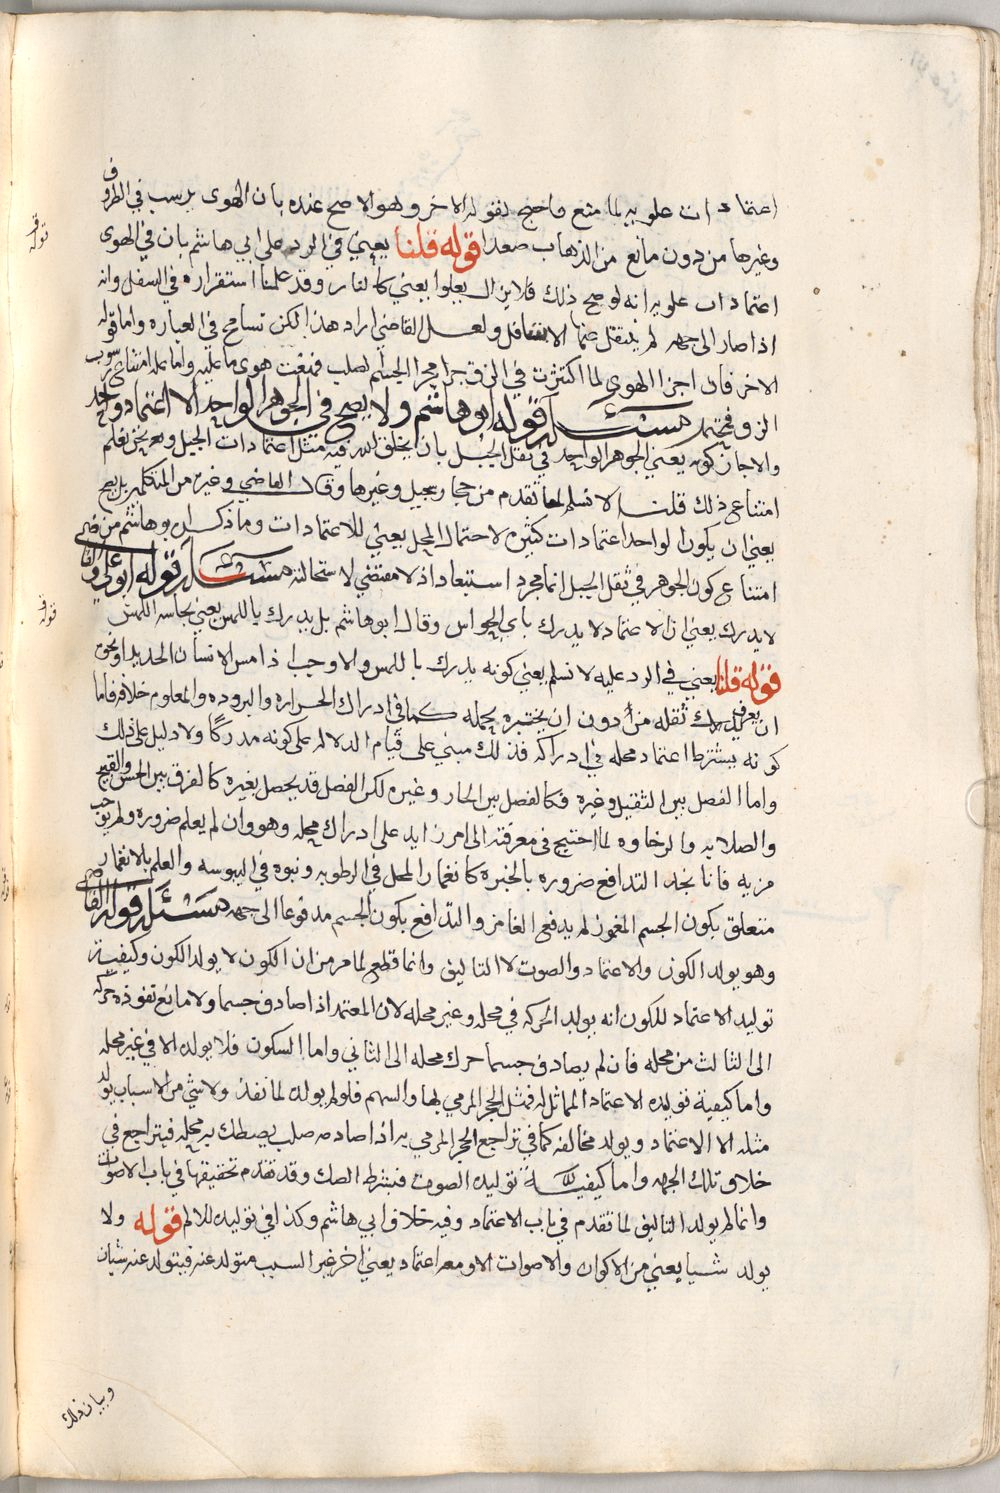 اعتمادات علويه لما منع واحتج بقوله الاخر وهو الاصح عنده بان الهوى يرسب في الظروف
وغيرها من دون مانع من الذهاب صعدا قوله قلنا يعني في الرد على ابي هاشم بان في الهوى
اعتمادات علويه انه لو صح ذلك فلا يزال يعلوا يعني كالنار وقد علمنا استقراره في السفل وانه
اذا صار الى جهه لم ينتقل عنها الا بناقل ولعل القاضي اراد هذا لكن تسامح في العباره واما قوله
الاخر فان اجزا الهوى لما اكتنزت في الزق جرا مجرا الجسم الصلب فمنعت هوى ما عليه واما علة امتناع رسوب
الزق فيحتمل مسئله قوله ابو هاشم ولا يصح في الجوهر الواحد الا اعتماد واحد
والا جاز كونه يعني الجوهر الواحد في ثقل الجبل بان يخلق الله فيه مثل اعتمادات الجبل ونحن نعلم
امتناع ذلك قلنا لا نسلم لما تقدم من حجا وبجيل وغيرها وقال القاضي وغيره من المتكلمين بل يصح
يعني ان يكون الواحد اعتمادات كثيره لاحتمال المحل يعني للاعتمادات وما ذكره ابو هاشم من
امتناع كون الجوهر في ثقل الجبل انما مجرد استبعاد اذ لا مقتضي لاستحالته مسئله قوله ابو علي
لا يدرك يعني ان الاعتماد لا يدرك باي الحواس وقال ابو هاشم بل يدرك باللمس يعني بحاسه اللمس
قوله قلنا يعني في الرد عليه لا نسلم يعني كونه يدرك باللمس والا وجب اذا مس الانسان الحديد او نحوه
ان يعرف ثقله من دون ان يختبره بحمله كما في ادراك الحراره والبروده والمعلوم خلافه فاما
كونه يشترط اعتماد محله في ادراكه فذلك مبني على قيام الدلاله على كونه مدركا ولا دليل على ذلك
واما الفصل بين الثقيل وغيره فكالفصل بين الحار وغيره لكن الفصل قد يحصل بغيره كالفرق بين الحسن والقبيح
والصلابه والرخاوه لما احتيج في معرفته الى امر زايد على ادراك محله وهو وان لم يعلم ضروره ولم يوجب
مزيه فانا نجد التدافع ضروره بالخبره كانغمار المحل في الرطوبه ونبوه في اليبوسه والعلم بالانغمار
متعلق بكون الجسم المغموز لم يدفع الغامز والتدافع بكون الجسم مدفوعا الى جهه مسئله قوله القاضي
وهو يولد الكون والاعتماد والصوت لا التاليف وانما قطع لما مر من ان الكون لا يولد الكون وكيفية
توليد الاعتماد للكون انه يولد الحركه في محله وغير محله لان المعتمد اذا صادف جسما ولا مانع نفوذه حركه
الى الثالث من محله فان لم يصادف جسما حرك محله الى الثاني واما السكون فلا يولده الا في غير محله
واما كيفية توليده الاعتماد المماثل له فمثل الحجر المرمي بها والسهم فلو لم يولد لما نفذ ولا شي من الاسباب يولد
مثله الا الاعتماد ويولد مخالفه كما في تراجع الحجر المرمي به اذا صادمه صلب يصطك به محله فيتراجع في
خلاف تلك الجهه واما كيفية توليده الصوت فبشرط الصك وقد تقدم تحقيقها في باب الاصوات
وانما لم يولد التاليف لما تقدم في باب الاعتماد وفيه خلاف ابي هاشم وكذا في توليده للالم قوله ولا
يولد شيا يعني من الاكوان والاصوات الا ومعه اعتماد يعني اخر غير السبب متولد عنه فيتولد عنه شيان
وبيان ذلك